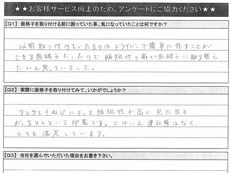 ★★お客様サービス向上のため、アンケートにご協力ください★★
【Q1】面格子を取り付ける前に困っていた事、気になっていたことは何ですか?
以前取り付けていたものはドライバーで簡単に外すことが
できる面格子だったので防犯性の高い面格子に取り替え
たいと思っていました。
【Q2】実際に面格子を取り付けてみて、いかがでしょうか?
ワンウェイねじによって防犯性が高く見た目も
がっちりしている印象です。とはいえ違和感はなく
とても満足しています。
【Q3】当社を選んでいただいた理由をお書き下さい。